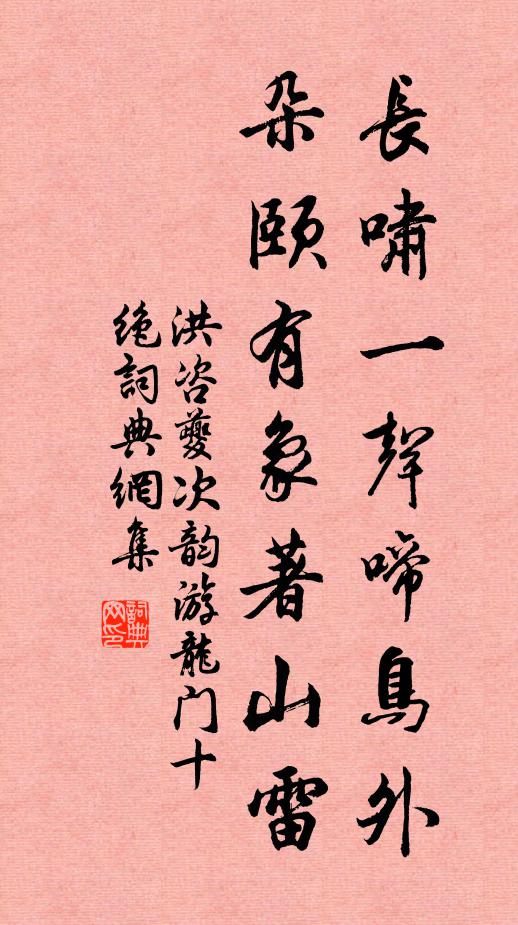 長嘯一聲啼鳥外
朵頤有象著山雷
洪咨夔次韵游龍门十
绝詞典網集
詞典
网印